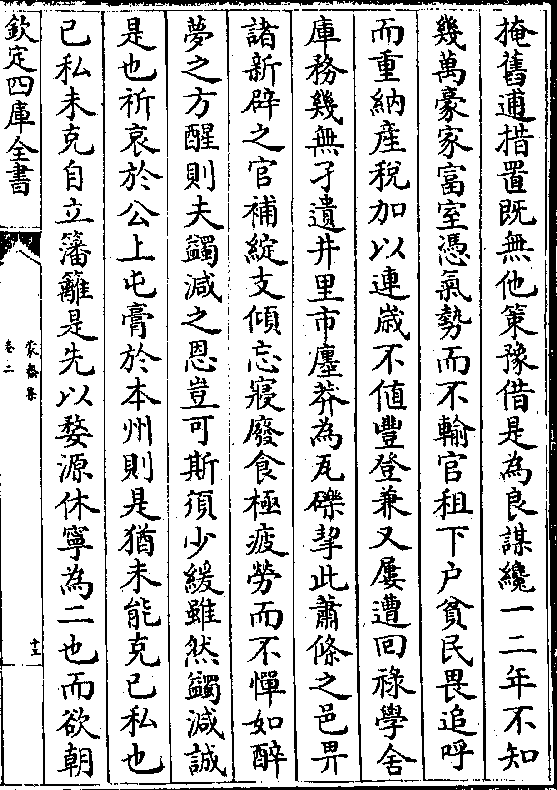 掩舊逋措置既無他策豫借是為良謀纔一二年不知
幾萬豪家富室憑氣勢而不輸官租下户貧民畏追呼
而重納產稅加以連嵗不値豐登兼又屢遭回祿學舍
庫務幾無孑遺井里市廛莽為瓦礫挈此蕭條之邑畀
諸新辟之官補綻支傾忘寢廢食極疲勞而不憚如醉
夢之方醒則夫蠲減之恩豈可斯須少緩雖然蠲減誠
是也祈哀於公上屯膏於本州則是猶未能克已私也
已私未克自立籓籬是先以婺源休寧為二也而欲朝
欽定四庫全書
蒙齋集
卷二
十三